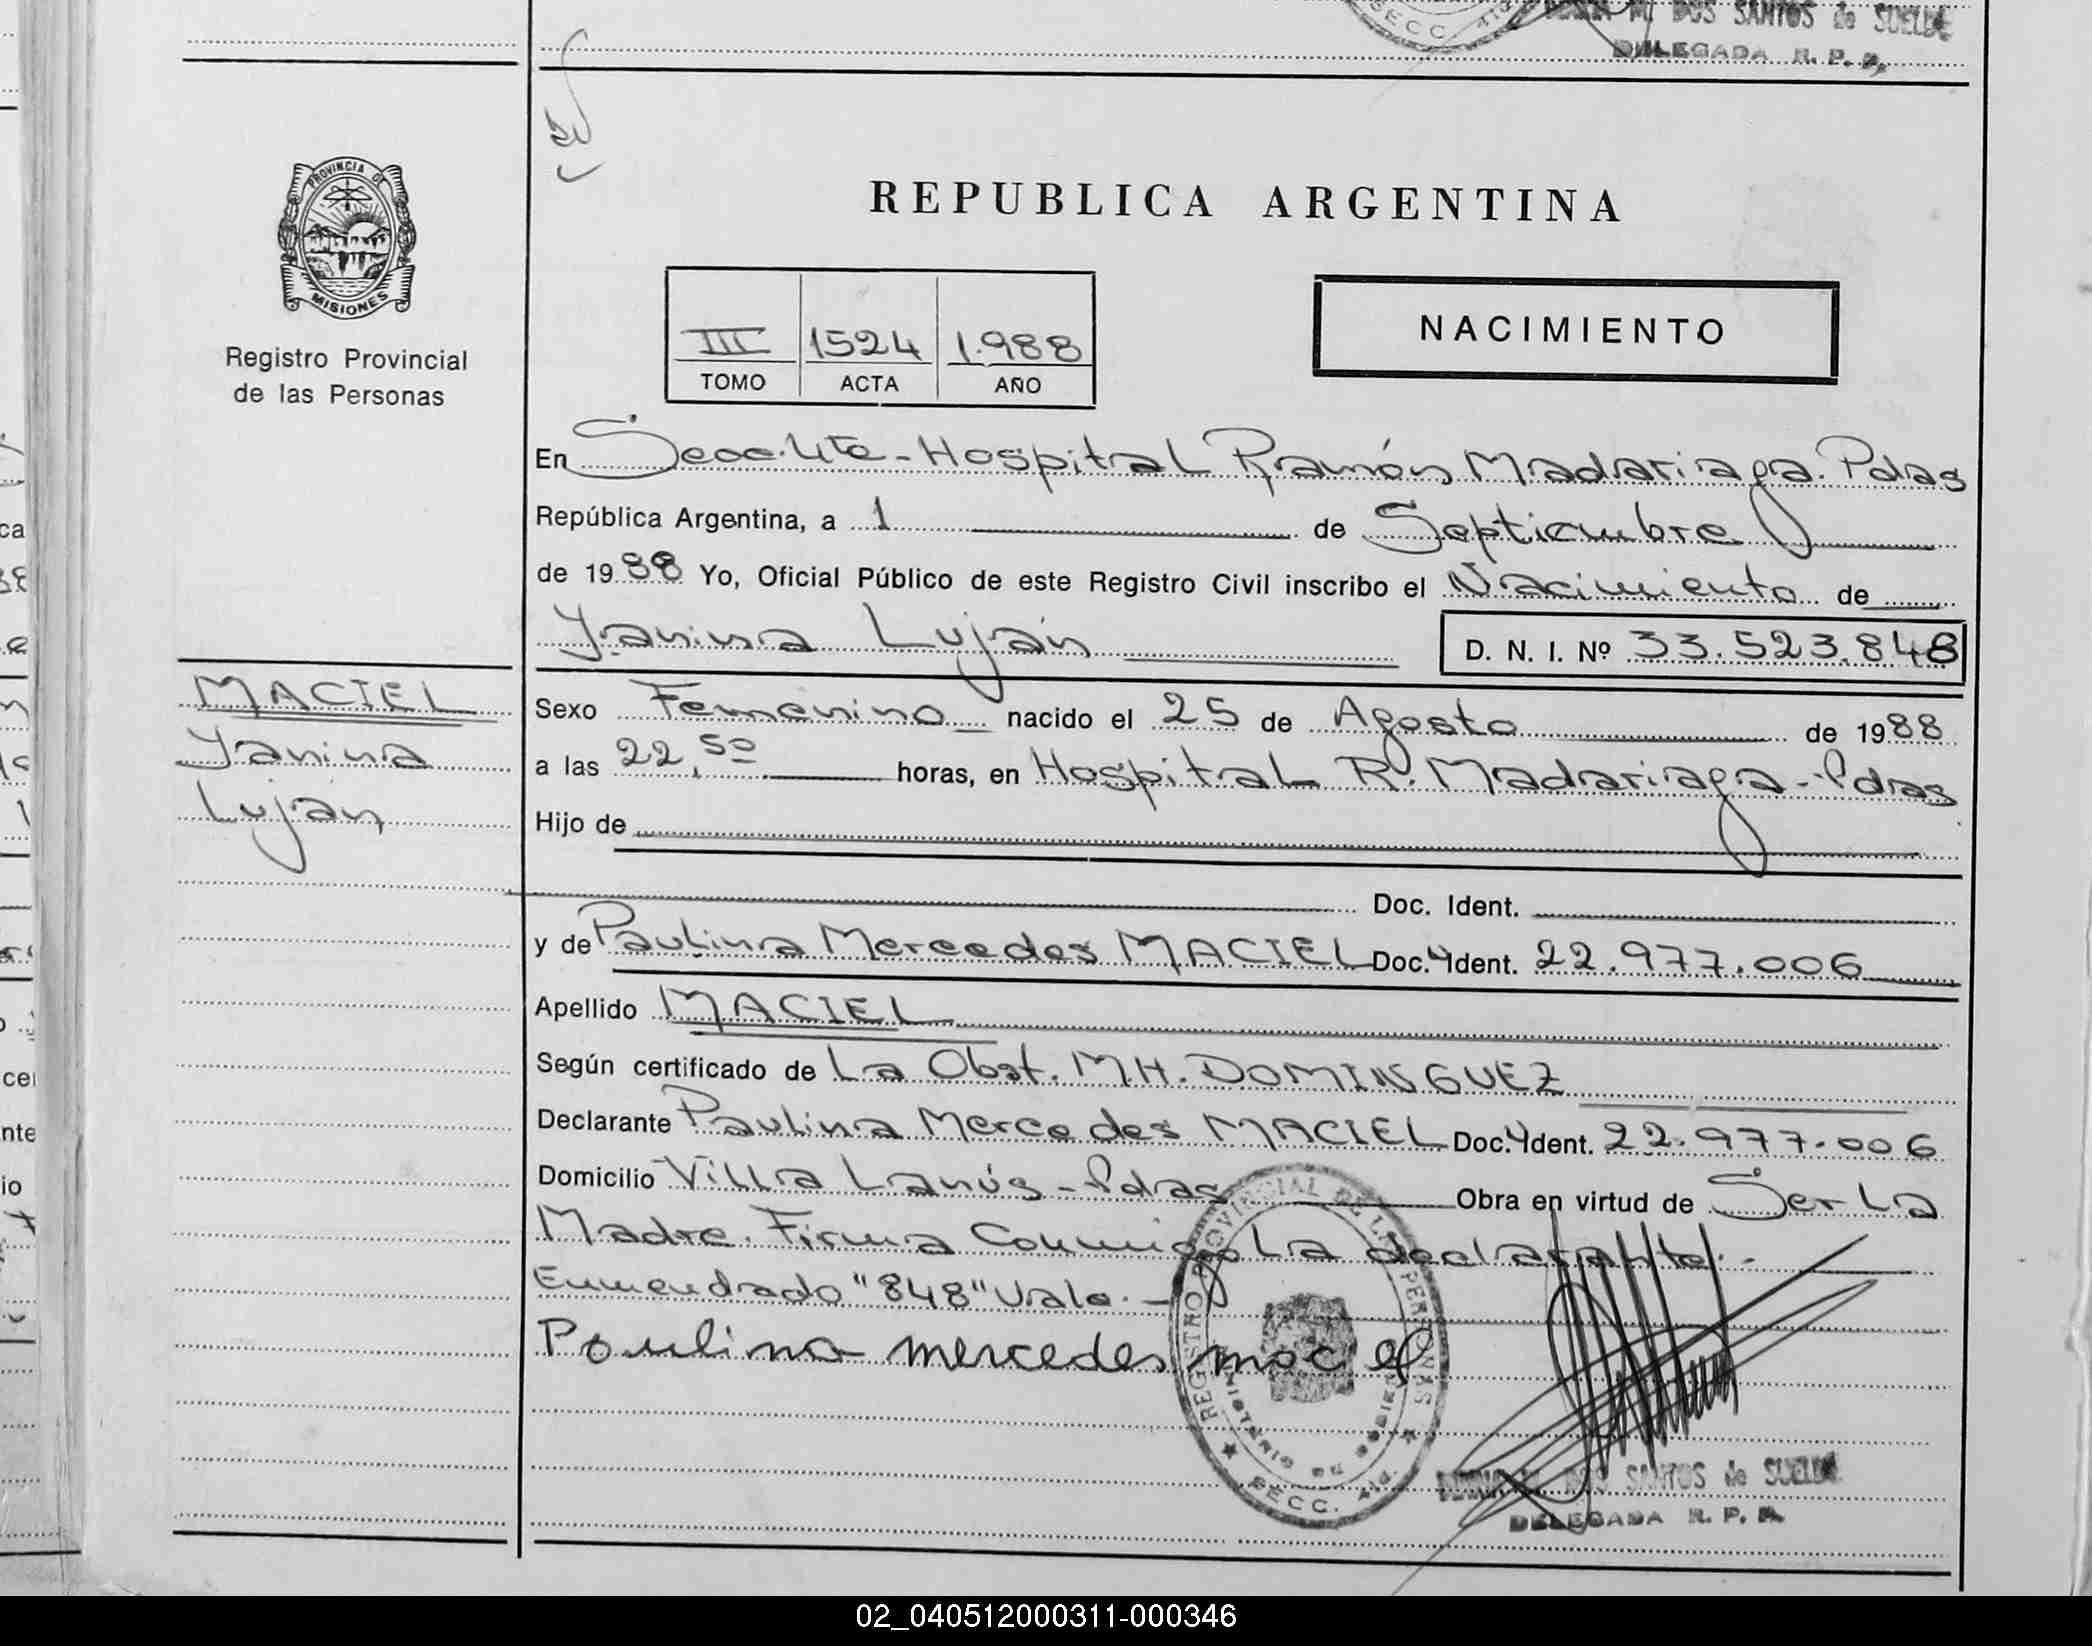 M. DOS SANTOS de SUELDE
DELEGADA R. P. P.
PROVINCIA DE
MISIONES
Registro Provincial
de las Personas
REPUBLICA ARGENTINA
III 1524 1.988
TOMO ACTA AÑO
NACIMIENTO
En Secc. 4ta - Hospital Ramón Madariaga. Pdas
República Argentina, a 1 de Septiembre
de 1988 Yo, Oficial Público de este Registro Civil inscribo el Nacimiento de
Yanina Luján D. N. I. Nº 33.523.848
MACIEL
Yanina
Luján
Sexo Femenino nacido el 25 de Agosto de 1988
a las 22,50 horas, en Hospital R. Madariaga - Pdas
Hijo de
Doc. Ident.
y de Paulina Mercedes MACIEL Doc. Ident. 22.977.006
Apellido MACIEL
Según certificado de La Obst. M.H. DOMINGUEZ
Declarante Paulina Mercedes MACIEL Doc. Ident. 22.977.006
Domicilio Villa Lanús - Pdas Obra en virtud de Ser La
Madre. Firma Conmigo La declarante. -
Enmendado "848" Vale. -
Paulina mercedes maciel
REGISTRO PROVINCIAL DE LAS PERSONAS
SECC. 4ta.
M. DOS SANTOS de SUELDE
DELEGADA R. P. P.
02_040512000311-000346